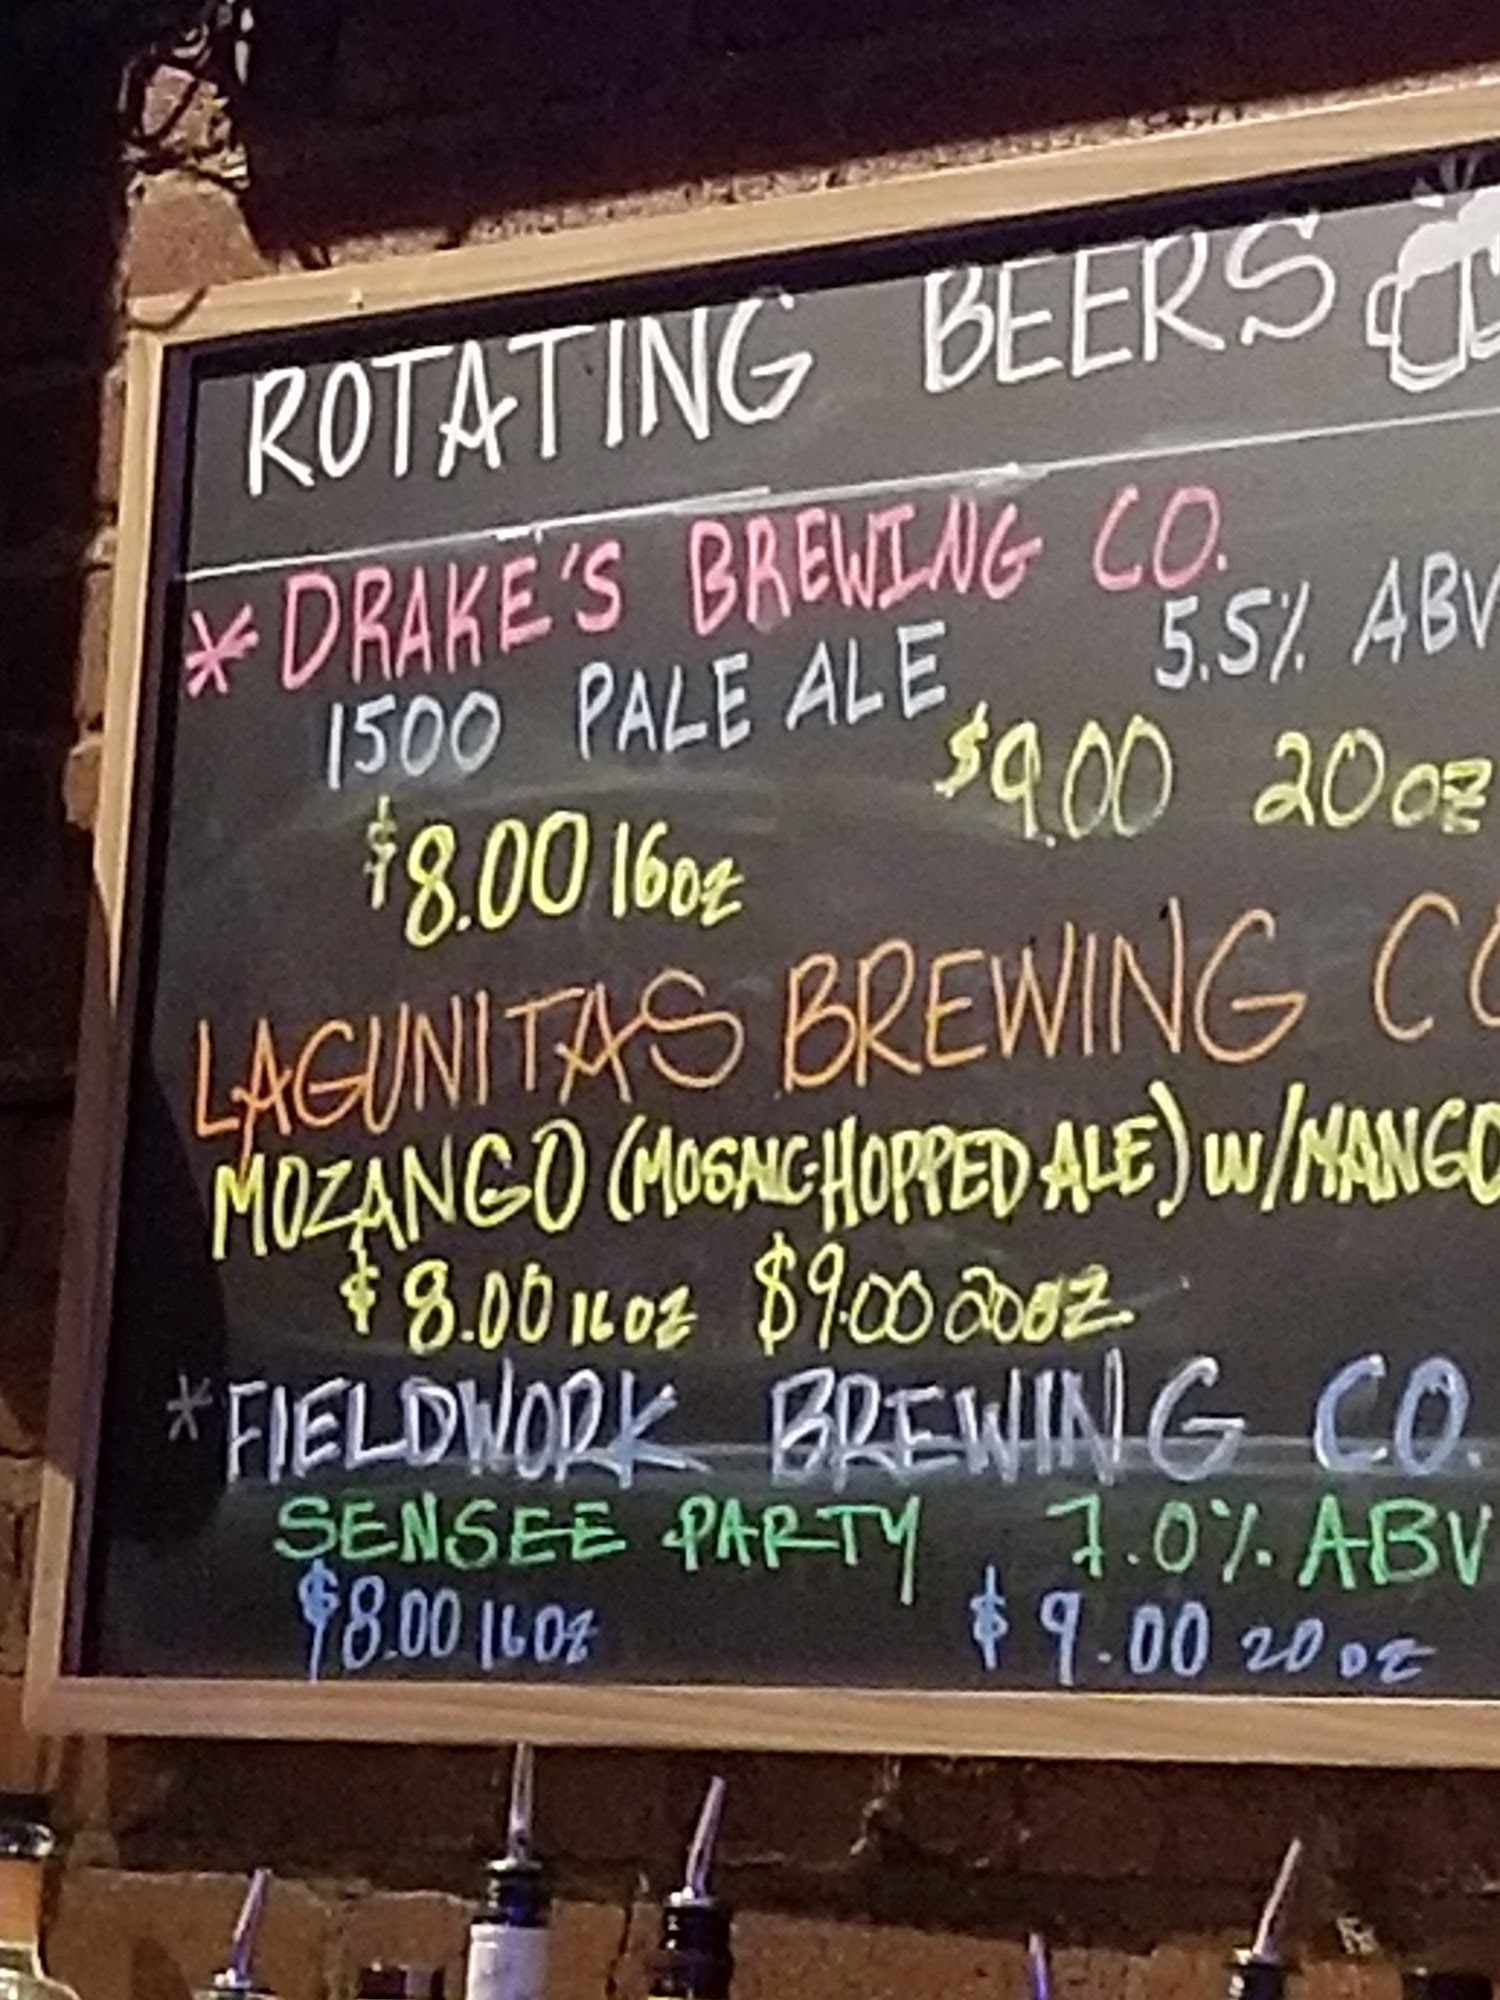 ROTATING BEERS
* DRAKE'S BREWING CO.
1500 PALE ALE 5.5% ABV
$8.00 16oz $9.00 20oz
LAGUNITAS BREWING CO
MOZANGO (MOSAIC-HOPPED ALE) W/MANGO
$8.00 16oz $9.00 20oz
* FIELDWORK BREWING CO.
SENSEE PARTY 7.0% ABV
$8.00 16oz $9.00 20oz